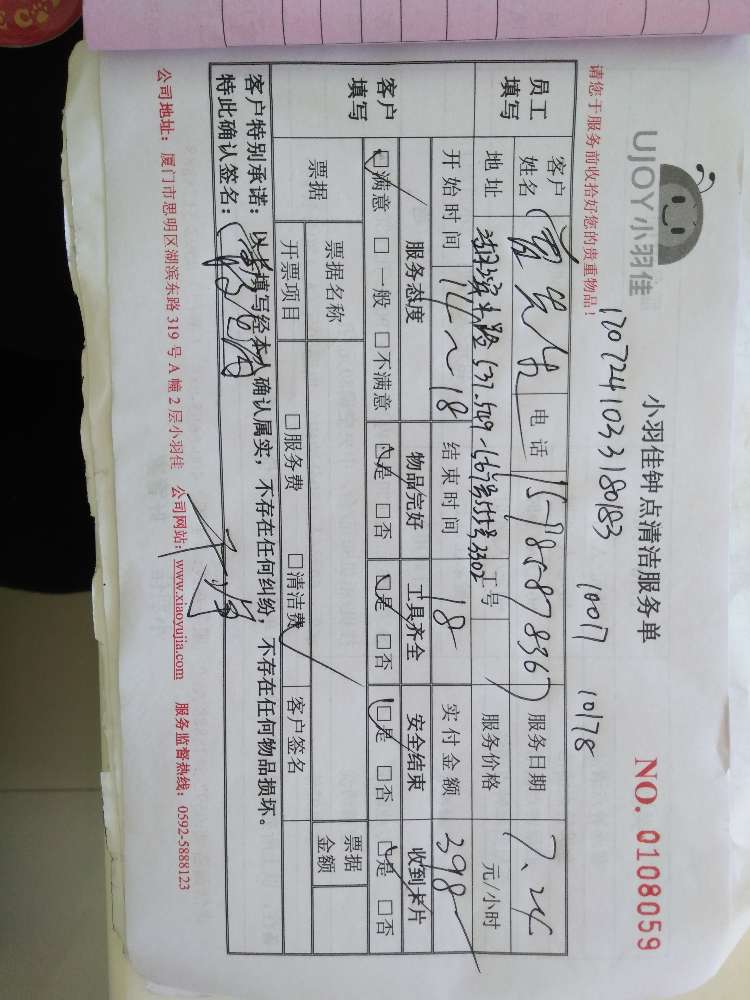 UJOY小羽佳
小羽佳钟点清洁服务单
NO. 0108059
1707241033180183 10017 10178
请您于服务前收拾好您的贵重物品！
员工填写
客户姓名
电话 15985878367
服务日期 7.24
地址
工号
服务价格 元/小时
开始时间 14~18
结束时间 18
实付金额 398
客户填写
服务态度 物品完好 工具齐全 安全结束 收到卡片
□满意 □一般 □不满意 □是 □否 □是 □否 □是 □否 □是 □否
票据
票据名称
票据金额
开票项目 □服务费 □清洁费 客户签名
客户特别承诺：以上填写经本人确认属实，不存在任何纠纷，不存在任何物品损坏。
特此确认签名：
公司地址：厦门市思明区湖滨东路 319 号 A 幢 2 层小羽佳 公司网站：www.xiaoyujia.com 服务监督热线：0592-5888123